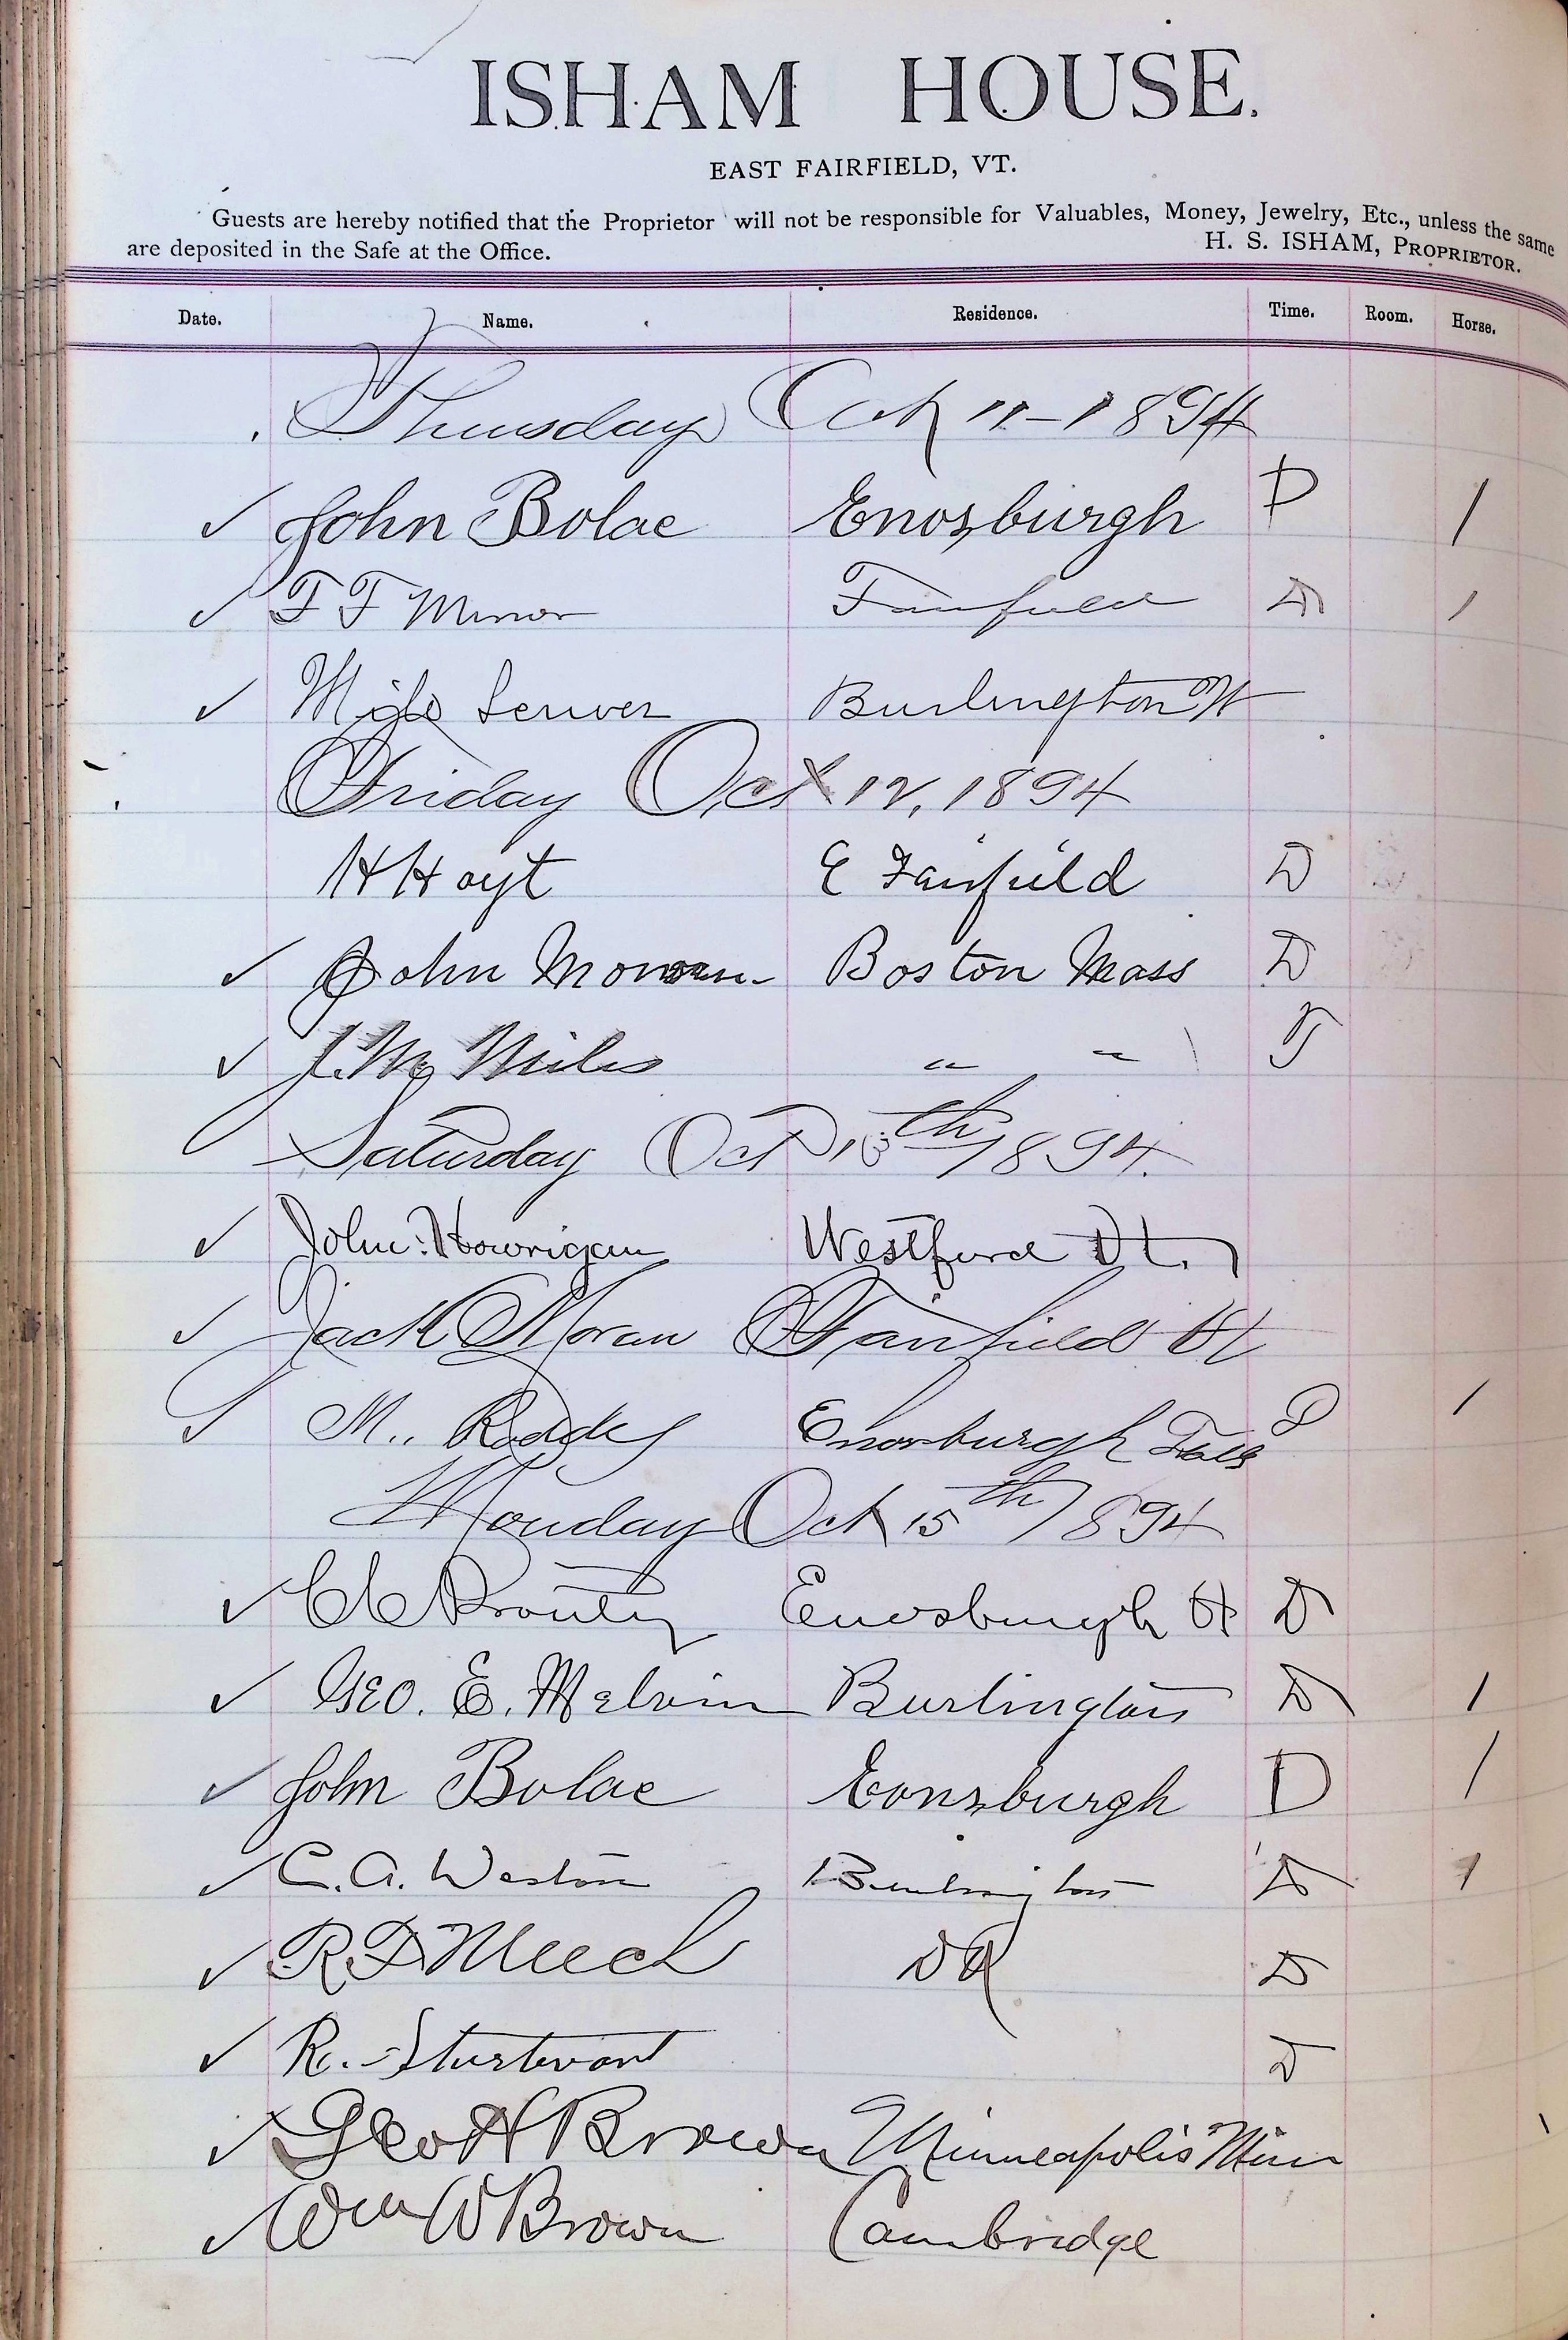 ISHAM HOUSE.
EAST FAIRFIELD, VT.
Guests are hereby notified that the Proprietor will not be responsible for Valuables, Money, Jewelry, Etc., unless the same
are deposited in the Safe at the Office. H. S. ISHAM, PROPRIETOR.
Date. Name. Residence. Time. Room. Horse.
Thursday Oct 11-1894
✓ John Bolac Enosburgh D 1
✓ F F Minor Fairfield D 1
✓ Milo Burlington Vt
Friday Oct 12, 1894
H Hoyt E Fairfield D
✓ John Boston Mass D
✓ J. M. Miles " " T
Saturday Oct 13th 1894.
✓ John Howrigan Westford Vt.
✓ Jack Moran Fairfield Vt
✓ M.. Roddy Enosburgh Falls D 1
Monday Oct 15th 1894
✓ C C Prouty Enosburgh Vt D
✓ Geo. E. Melvin Burlington D 1
✓ John Bolac Eonsburgh D 1
✓ C. A. Weston Burlington D 1
✓ R D Meech D
✓ R. Sturtevant D
✓ Geo H Brown Minneapolis Minn
✓ Wm W Brown Cambridge